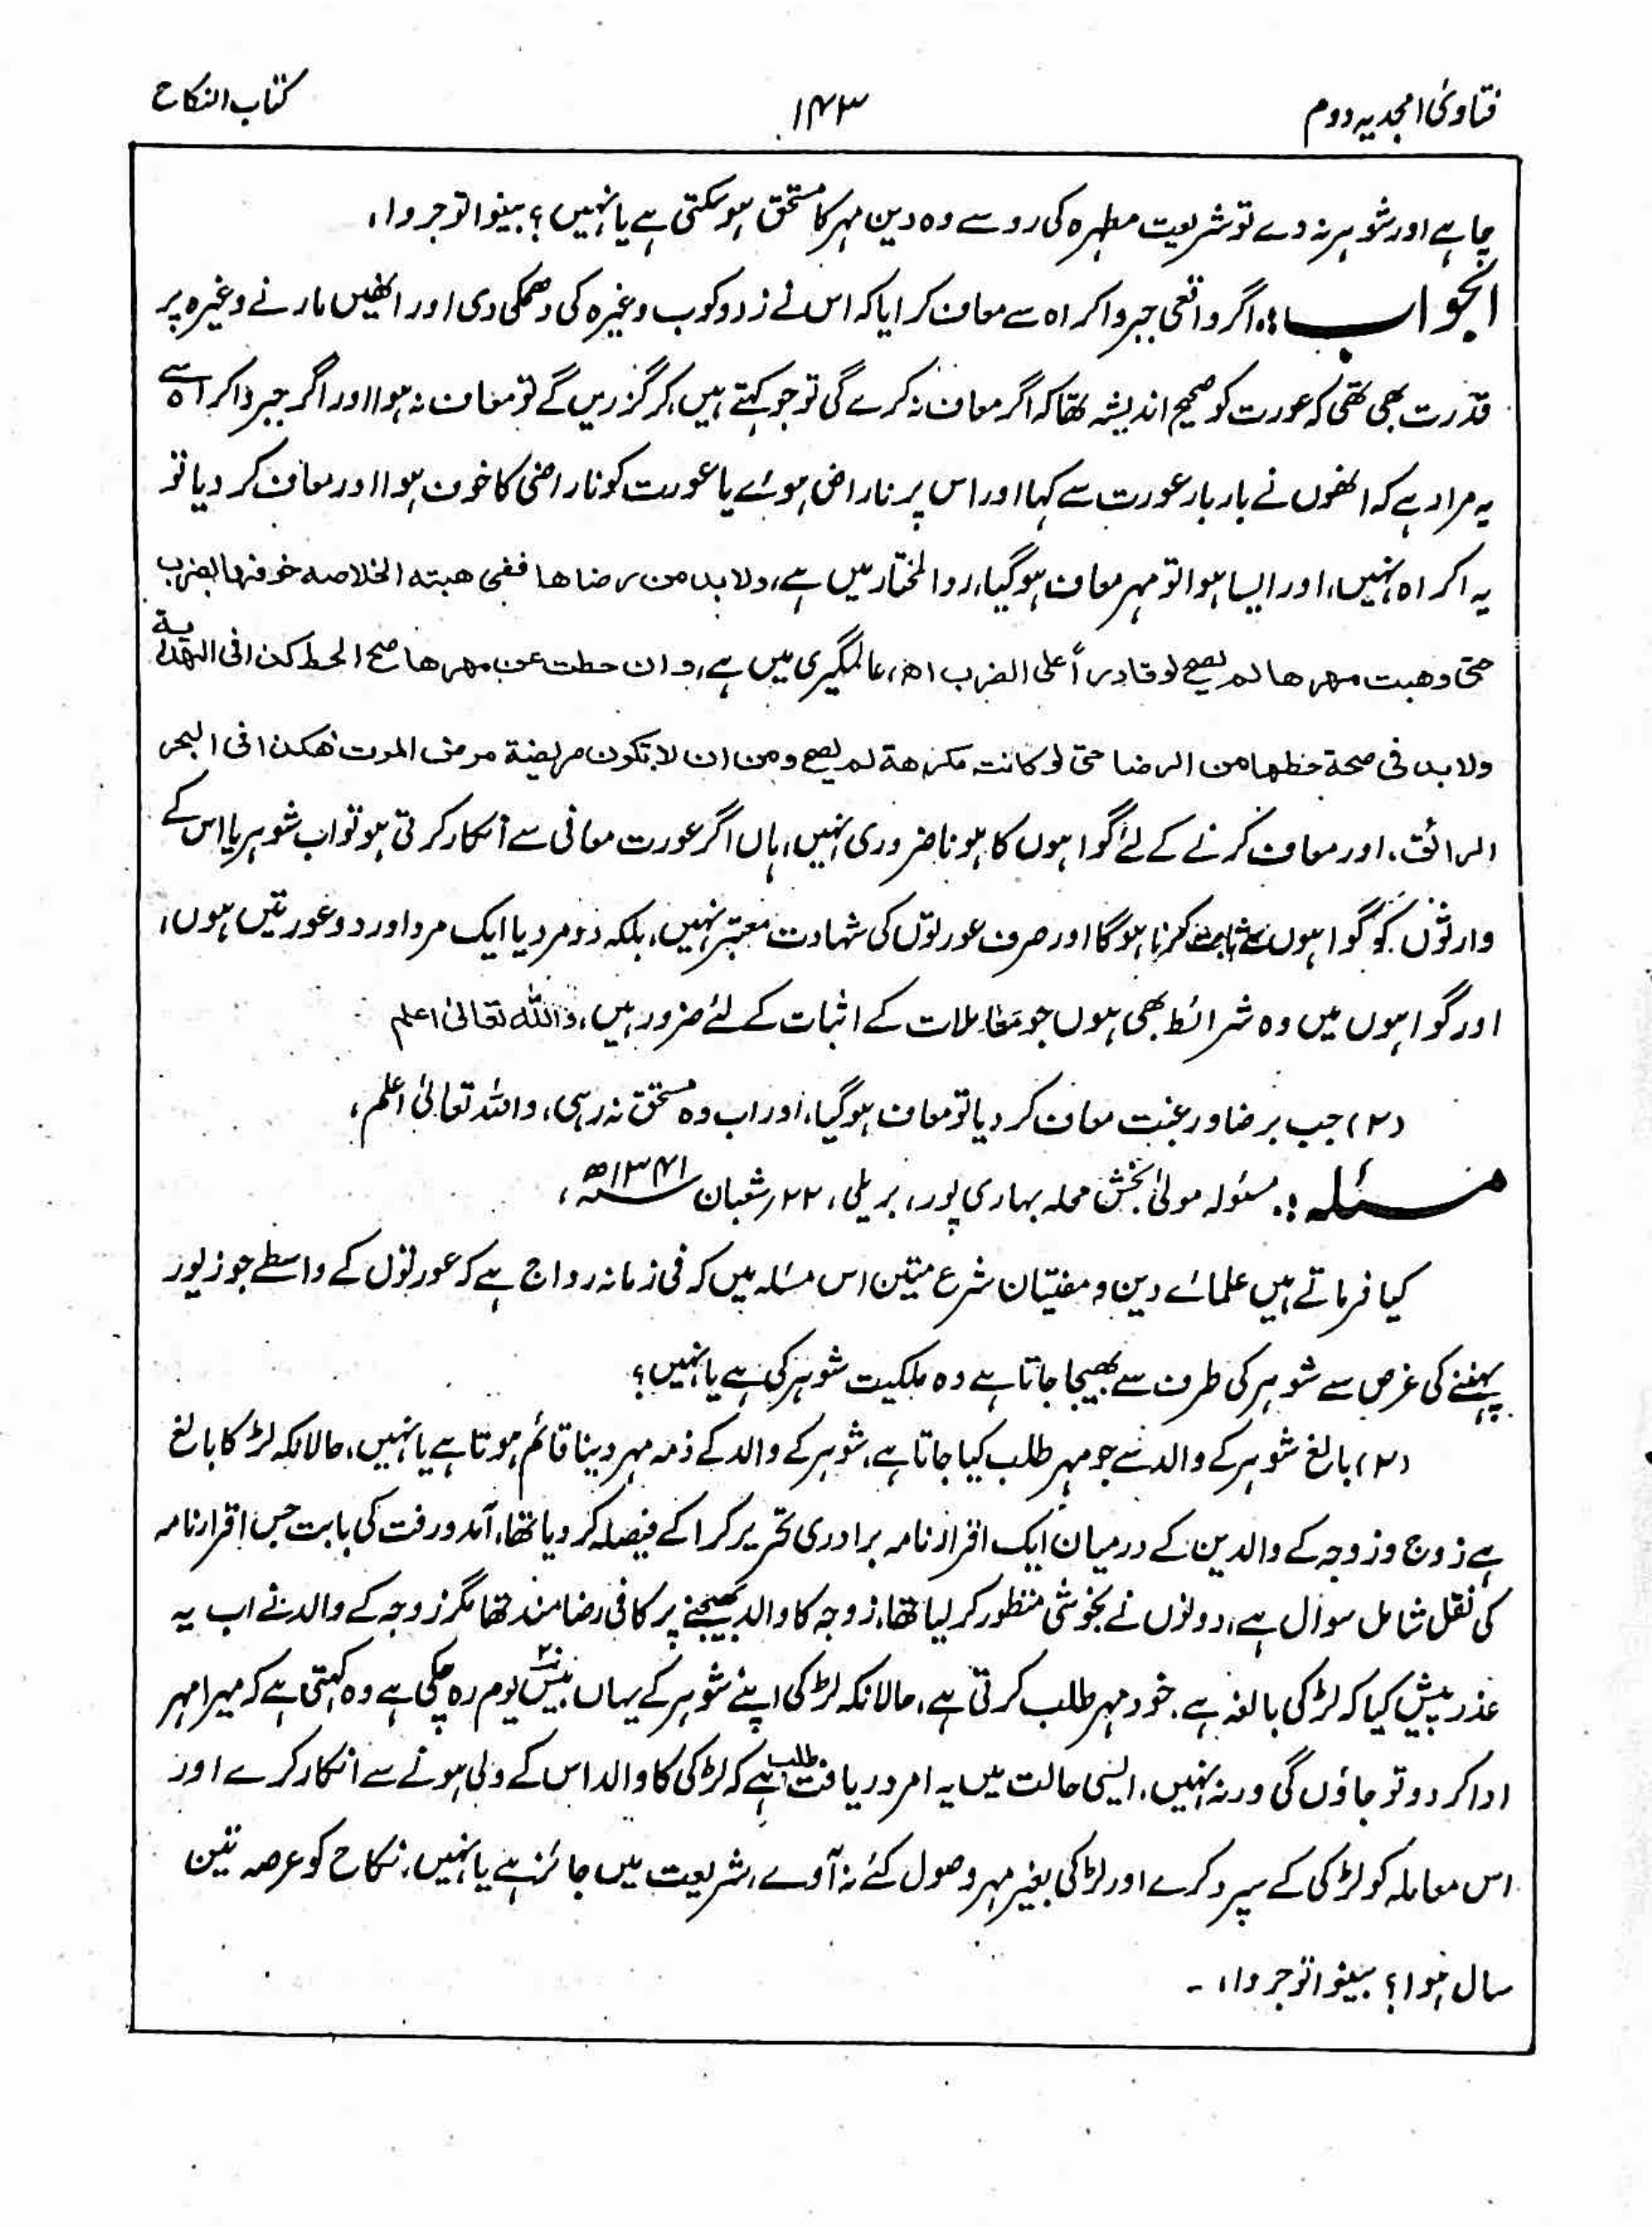 فتاویٰ امجدیہ دوم
۱۴۳
کتاب النکاح
چاہے اور شوہر نہ دے تو شریعت مطہرہ کی رو سے وہ دین مہر کا مستحق ہو سکتی ہے یا نہیں؟ بینوا توجروا،
الجواب :۔ اگر واقعی جبر و اکراہ سے معاف کرایا کہ اس نے زد و کوب وغیرہ کی دھمکی دی اور انھیں مارنے وغیرہ پر
قدرت بھی تھی کہ عورت کو صحیح اندیشہ تھا کہ اگر معاف نہ کرے گی تو جو کہتے ہیں کر گزریں گے تو معاف نہ ہوا اور اگر جبر و اکراہ سے
یہ مراد ہے کہ انھوں نے بار بار عورت سے کہا اور اس پر ناراض ہوئے یا عورت کو ناراضی کا خوف ہوا اور معاف کر دیا تو
یہ اکراہ نہیں، اور ایسا ہوا تو مہر معاف ہو گیا، رد المختار میں ہے، ولا بد من رضاها ففی هبته الخلاصه خوفها بضرب
حتی وهبت مهرها لم یصح لو قادراً علی الضرب اھ، عالمگیری میں ہے، و ان حطت عن مهرها صح الحط کذا فی الهدایة
ولا بد فی صحة حطها من الرضا حتی لو کانت مکرهة لم یصح و من ان لا تکون مریضة مرض الموت هکذا فی البحر
الرائق، اور معاف کرنے کے لئے گواہوں کا ہونا ضروری نہیں، ہاں اگر عورت معافی سے انکار کرتی ہو تو اب شوہر یا اس کے
وارثوں کو گواہوں سے ثابت کرنا ہوگا اور صرف عورتوں کی شہادت معتبر نہیں، بلکہ دو مرد یا ایک مرد اور دو عورتیں ہوں،
اور گواہوں میں وہ شرائط بھی ہوں جو معاملات کے اثبات کے لئے ضرور ہیں، واللہ تعالیٰ اعلم
(۲) جب برضا و رغبت معاف کر دیا تو معاف ہو گیا، اور اب وہ مستحق نہ رہی، واللہ تعالیٰ اعلم،
مسئلہ :۔ مسئولہ مولیٰ بخش محلہ بہاری پور، بریلی، ۲۲ شعبان ۱۳۴۱ھ،
کیا فرماتے ہیں علمائے دین و مفتیان شرع متین اس مسئلہ میں کہ فی زمانہ رواج ہے کہ عورتوں کے واسطے جو زیور
پہننے کی غرض سے شوہر کی طرف سے بھیجا جاتا ہے وہ ملکیت شوہر کی ہے یا نہیں؟
(۲) بالغ شوہر کے والد سے جو مہر طلب کیا جاتا ہے، شوہر کے والد کے ذمہ مہر دینا قائم ہوتا ہے یا نہیں، حالانکہ لڑکا بالغ
ہے زوج و زوجہ کے والدین کے درمیان ایک اقرار نامہ برادری تحریر کرا کے فیصلہ کر دیا تھا، آمد و رفت کی بابت جس اقرار نامہ
کی نقل شامل سوال ہے، دونوں نے بخوشی منظور کر لیا تھا، زوجہ کا والد بھیجنے پر کافی رضامند تھا مگر زوجہ کے والد نے اب یہ
عذر پیش کیا کہ لڑکی بالغہ ہے، خود مہر طلب کرتی ہے، حالانکہ لڑکی اپنے شوہر کے یہاں بیس۲۰ یوم رہ چکی ہے وہ کہتی ہے کہ میرا مہر
ادا کر دو تو جاؤں گی ورنہ نہیں، ایسی حالت میں یہ امر دریافت طلب ہے کہ لڑکی کا والد اس کے ولی ہونے سے انکار کرے اور
اس معاملہ کو لڑکی کے سپرد کرے اور لڑکی بغیر مہر وصول کئے نہ آوے، شریعت میں جائز ہے یا نہیں، نکاح کو عرصہ تین
سال ہوا؟ بینوا توجروا، ۔